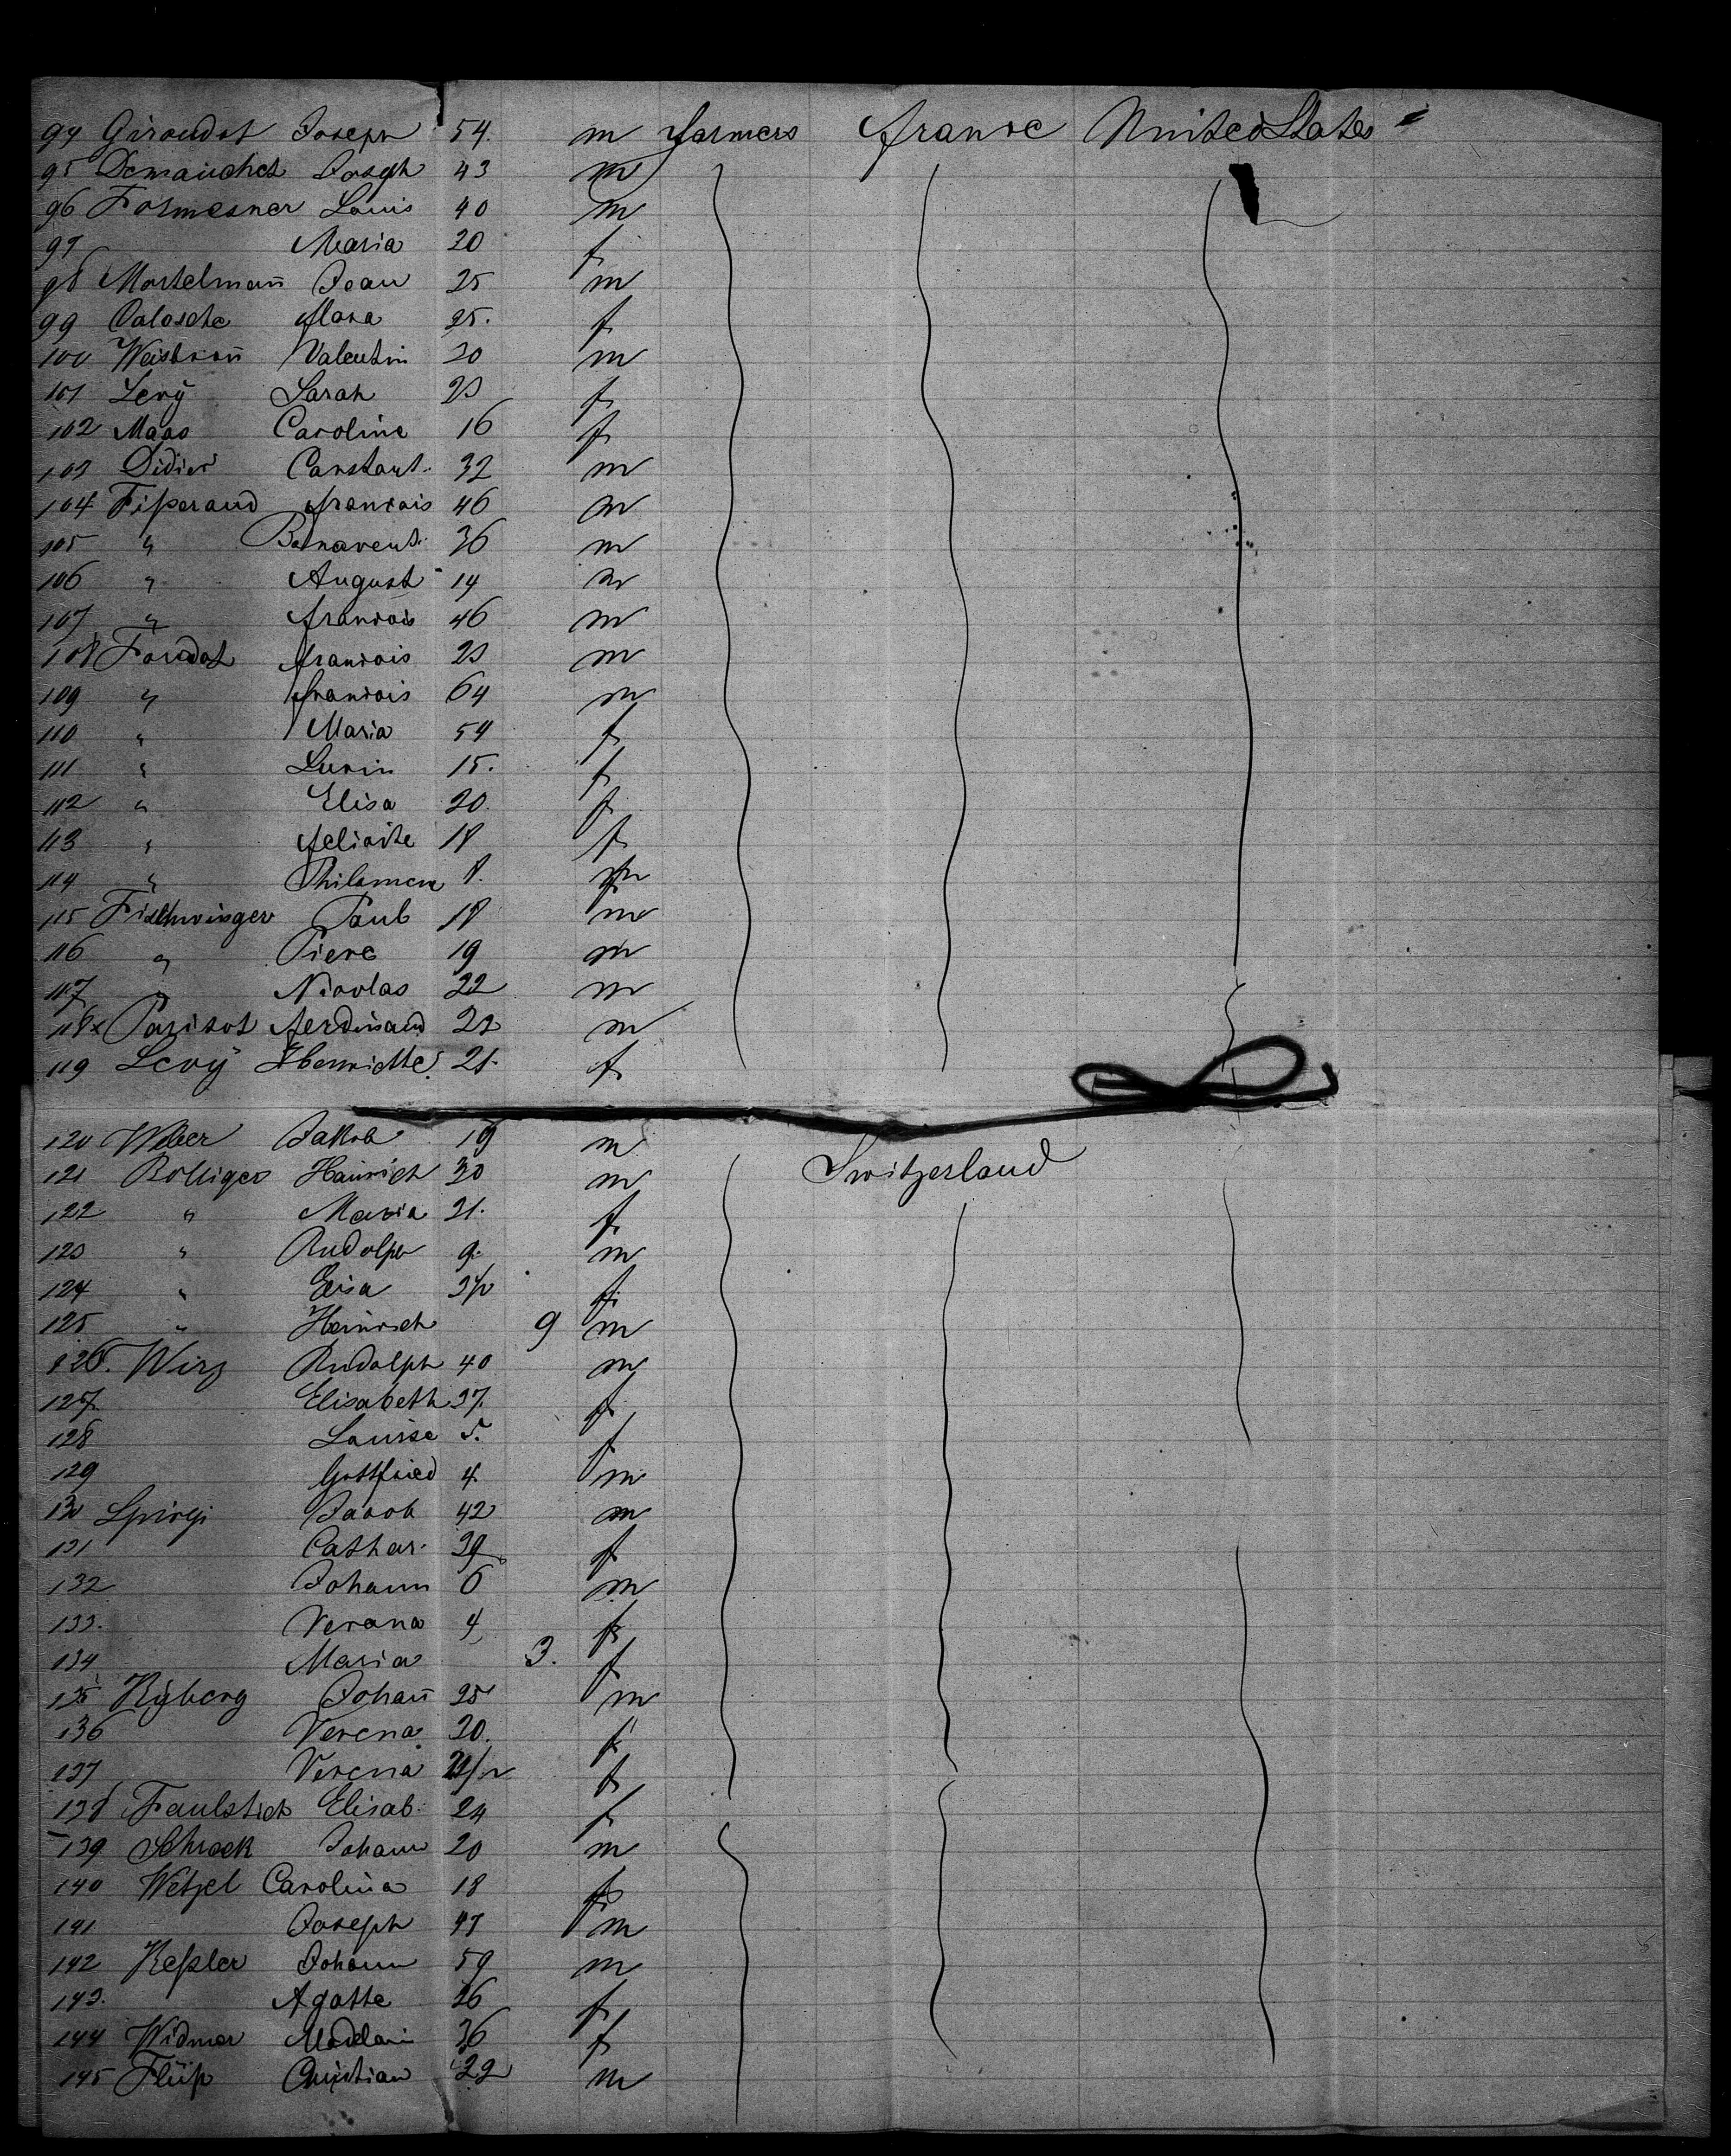 94 Giroudot Joseph 54. m farmers france United States "
95 Demaudhet Joseph 43 m
96 Formesner Louis 40 m
97 Maria 20 f
98 Mortelmañ Jean 25 m
99 Valosche Mara 25. f
100 Valentin 20 m
101 Levÿ Sarah 23 f
102 Maas Caroline 16 f
103 Didier Constant. 32 m
104 Fisserand francois 46 m
105 " Bonavent. 36 m
106 " August 14 m
107 " francois 46 m
108 francois 23 m
109 " francois 64 m
110 " Maria 54 f
111 " Lucin 15. f
112 " Elisa 20. f
113 " felicite 18 f
114 " Philomen 8. f
115 Fischwinger Paul 18 m
116 " Piere 19 m
117 " Nicolas 22 m
118 x Parisot ferdinand 22 m
119 Levÿ Henriette 21. f
120 Weber Jakob 19 m
121 Bolliger Heinrich 30 m Switzerland
122 " Maria 21. f
123 " Rudolph 9. m
124 " Elisa f
125 " Heinrich 9 m
126. Wirz Rudolph 40 m
127 Elisabeth 37. f
128 Louise 5. f
129 Gottfried 4 m
130 Spirgi Jacob 42 m
131 Cathar. 39 f
132 Johann 6 m
133. Verona 4 f
134 Maria 3. f
135 Kÿberg Johañ 25 m
136 Verena 20. f
137 Verena f
138 Faulstich Elisab. 24 f
139 Schrock Johann 20 m
140 Wetzel Carolina 18 f
141 Joseph 47 m
142 Kessler Johann 59 m
143. Agathe 26 f
144 Widmer Madlain 36 f
145 Flüss Christian 22 m